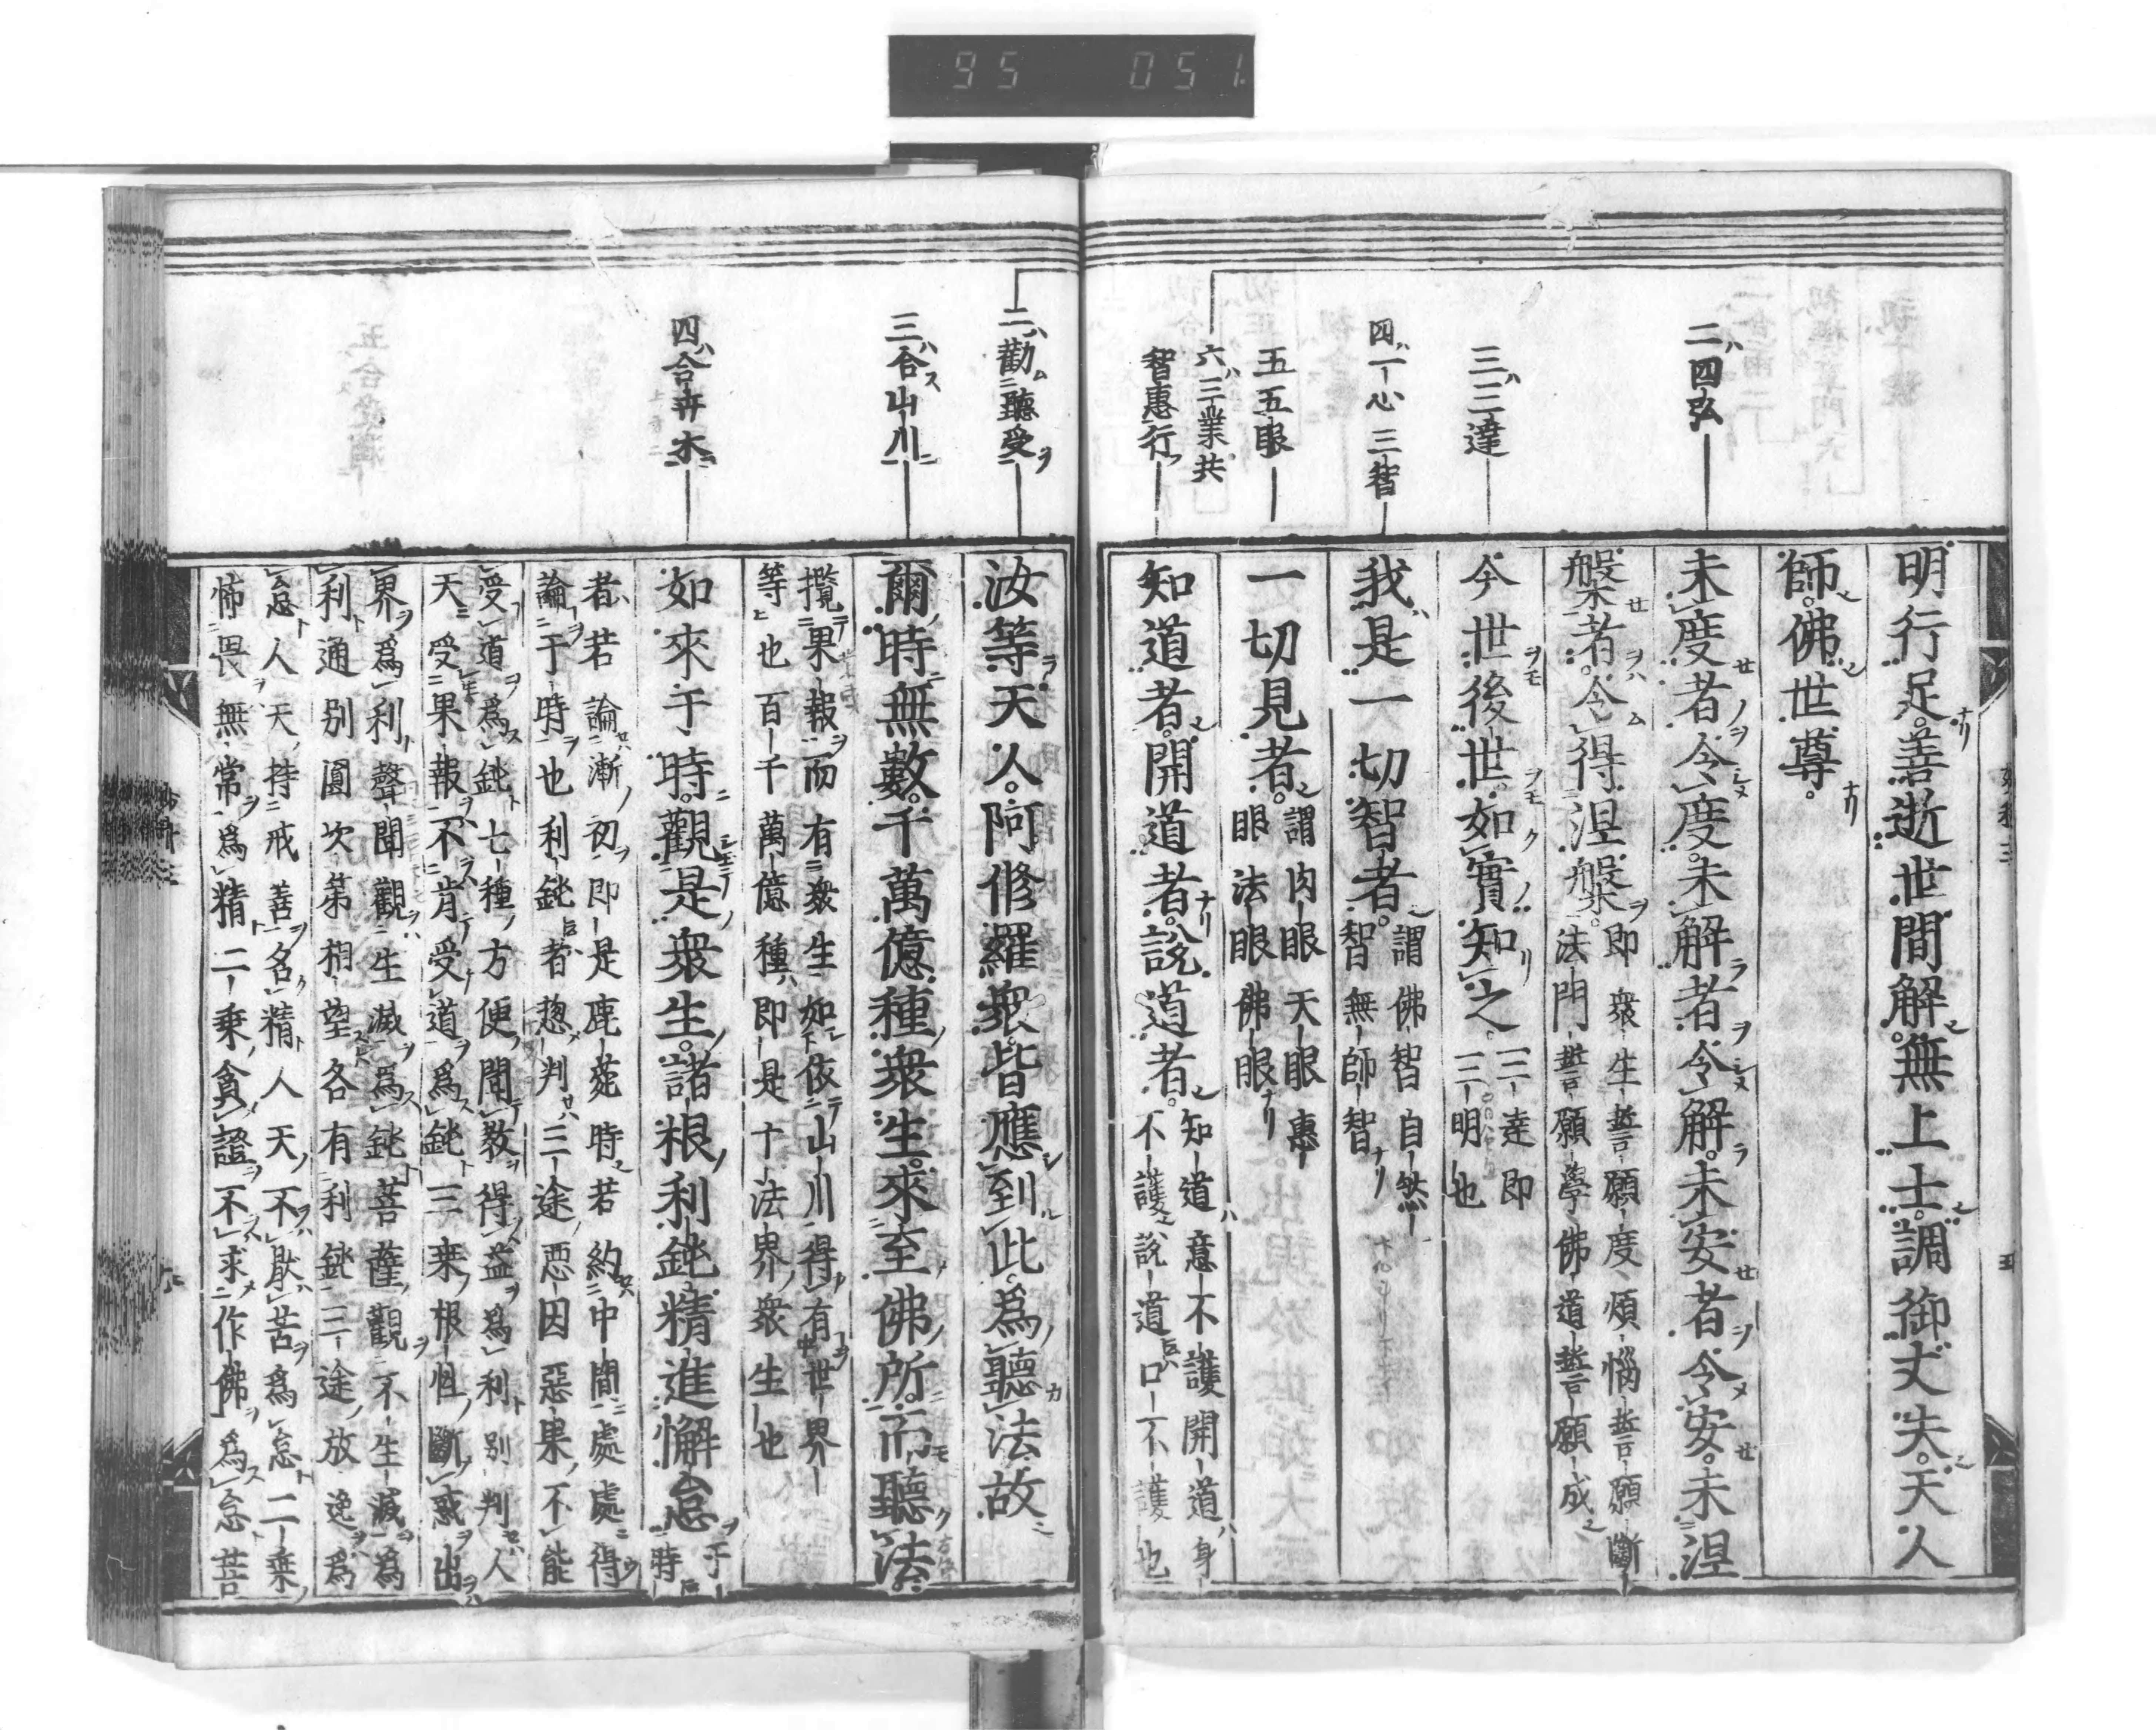 95 051
二四弘
三三達
四一心三智
五五眼
六三業共
智惠行
明行足。善逝世間解。無上士。調御丈夫。天人
師。佛世尊。
未度者令度。未解者令解。未安者令安。未涅
槃者。令得涅槃。
即衆生誓願度煩惱誓願斷
法門誓願學佛道誓願成
今世後世。如實知之。
三達即
三明也
我是一切智者。
謂佛智自然
智無師智
一切見者。
謂肉眼天眼惠
眼法眼佛眼
知道者。開道者。說道者。
知道意不護開道身
不護說道口不護也
二勸聽受
三合山川
四合卉木
汝等天人。阿修羅衆。皆應到此。爲聽法故
爾時無數。千萬億種衆生。來至佛所。而聽法。
攬果報而有衆生如依山川得有世界
等也百千萬億種即是十法界衆生也
如來于時。觀是衆生。諸根利鈍。精進懈怠
于
時
者若論漸初即是鹿菀時若約中間處處得
論于時也利鈍者惣判三途惡因惡果不能
受道爲鈍七種方便聞教得益爲利別判人
天受果報不肯受道爲鈍三乗根性斷惑出
界爲利聲聞觀生滅爲鈍菩薩觀不生滅爲
利通別圓次第相望各有利鈍三途放逸爲
怠人天持戒善名精人天不猒苦爲怠二乗
怖畏無常爲精二乗貪證不求作佛爲怠菩